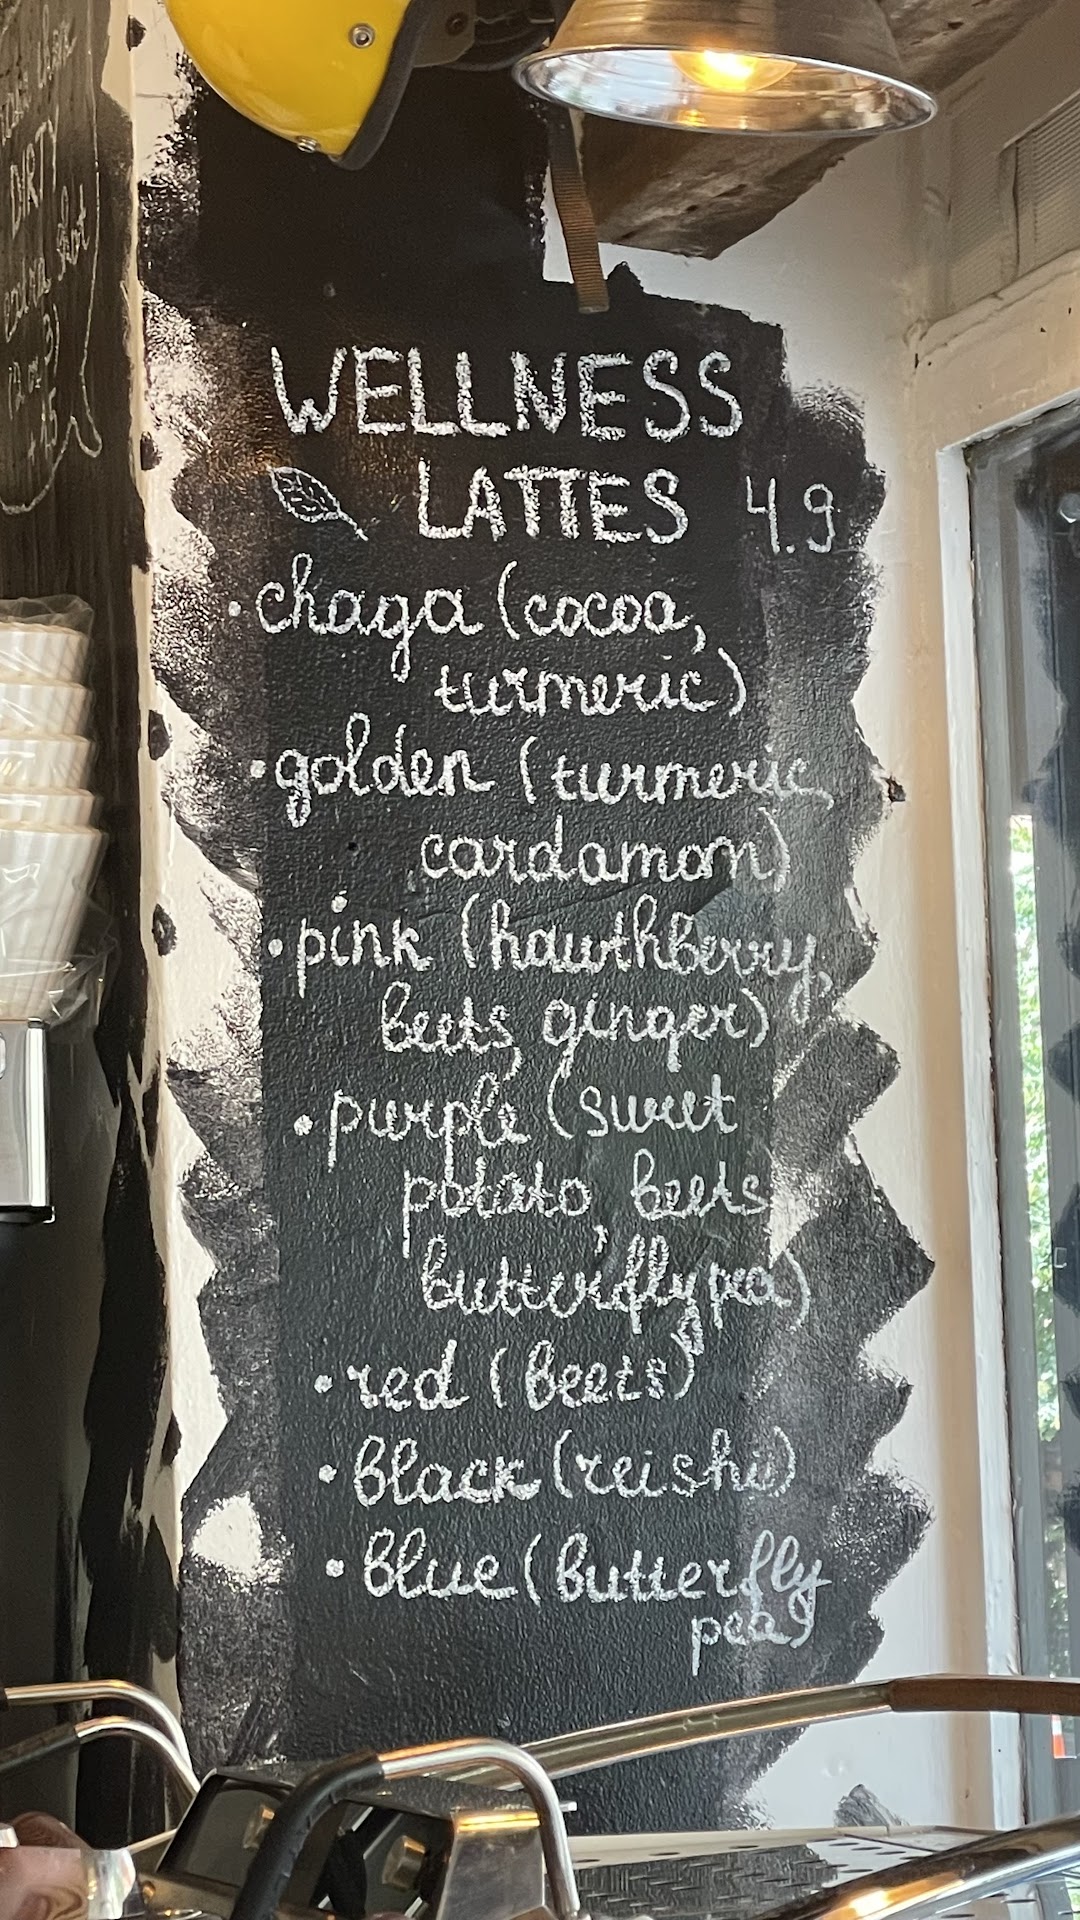 WELLNESS
LATTES 4.9
• chaga (cocoa,
turmeric)
• golden (turmeric,
cardamon)
• pink (hawthberry,
beets, ginger)
• purple (sweet
potato, beets
butterfly pea)
• red (beets)
• black (reishi)
• blue (butterfly
pea)
DIRTY